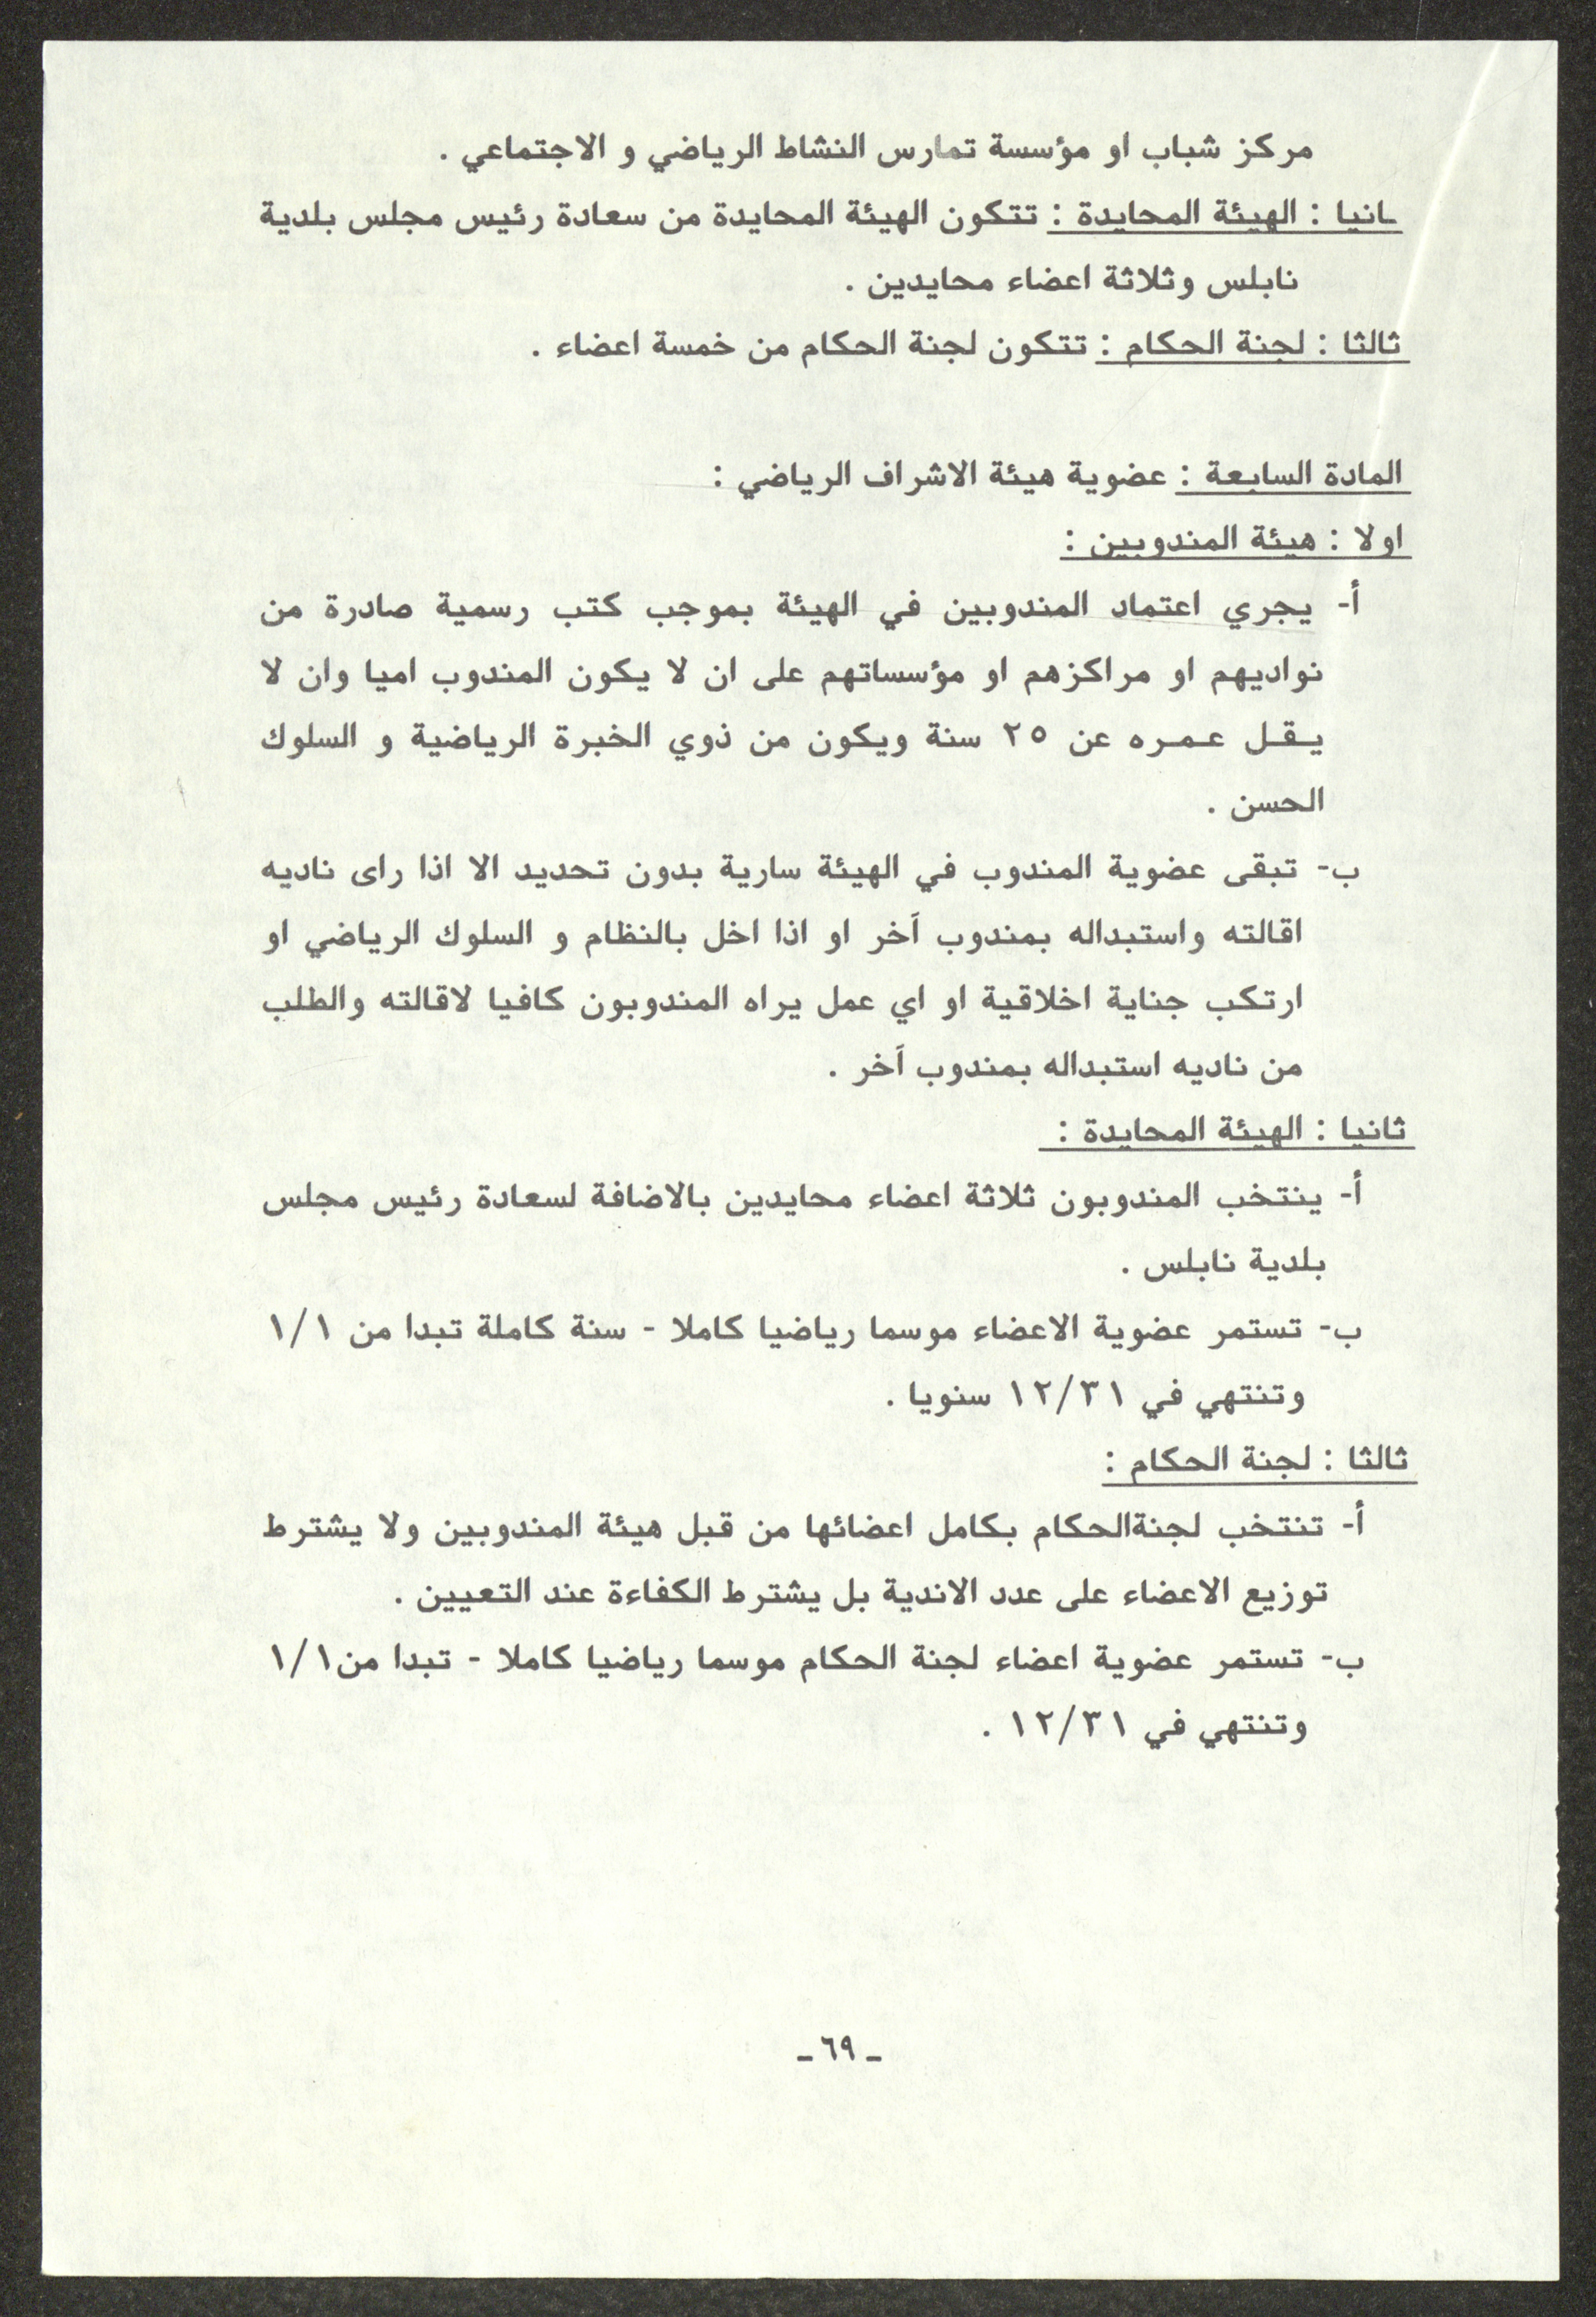 مركز شباب او مؤسسة تمارس النشاط الرياضي و الاجتماعي .
ـانيا : الهيئة المحايدة : تتكون الهيئة المحايدة من سعادة رئيس مجلس بلدية
نابلس وثلاثة اعضاء محايدين .
ثالثا : لجنة الحكام : تتكون لجنة الحكام من خمسة اعضاء .
المادة السابعة : عضوية هيئة الاشراف الرياضي :
اولا : هيئة المندوبين :
أ- يجري اعتماد المندوبين في الهيئة بموجب كتب رسمية صادرة من
نواديهم او مراكزهم او مؤسساتهم على ان لا يكون المندوب اميا وان لا
يـقـل عـمـره عن ٢٥ سنة ويكون من ذوي الخبرة الرياضية و السلوك
الحسن .
ب- تبقى عضوية المندوب في الهيئة سارية بدون تحديد الا اذا راى ناديه
اقالته واستبداله بمندوب آخر او اذا اخل بالنظام و السلوك الرياضي او
ارتكب جناية اخلاقية او اي عمل يراه المندوبون كافيا لاقالته والطلب
من ناديه استبداله بمندوب آخر .
ثانيا : الهيئة المحايدة :
أ- ينتخب المندوبون ثلاثة اعضاء محايدين بالاضافة لسعادة رئيس مجلس
بلدية نابلس .
ب- تستمر عضوية الاعضاء موسما رياضيا كاملا - سنة كاملة تبدا من ١/١
وتنتهي في ١٢/٣١ سنويا .
ثالثا : لجنة الحكام :
أ- تنتخب لجنةالحكام بكامل اعضائها من قبل هيئة المندوبين ولا يشترط
توزيع الاعضاء على عدد الاندية بل يشترط الكفاءة عند التعيين .
ب- تستمر عضوية اعضاء لجنة الحكام موسما رياضيا كاملا - تبدا من١/١
وتنتهي في ١٢/٣١ .
ـ ٦٩ ـ